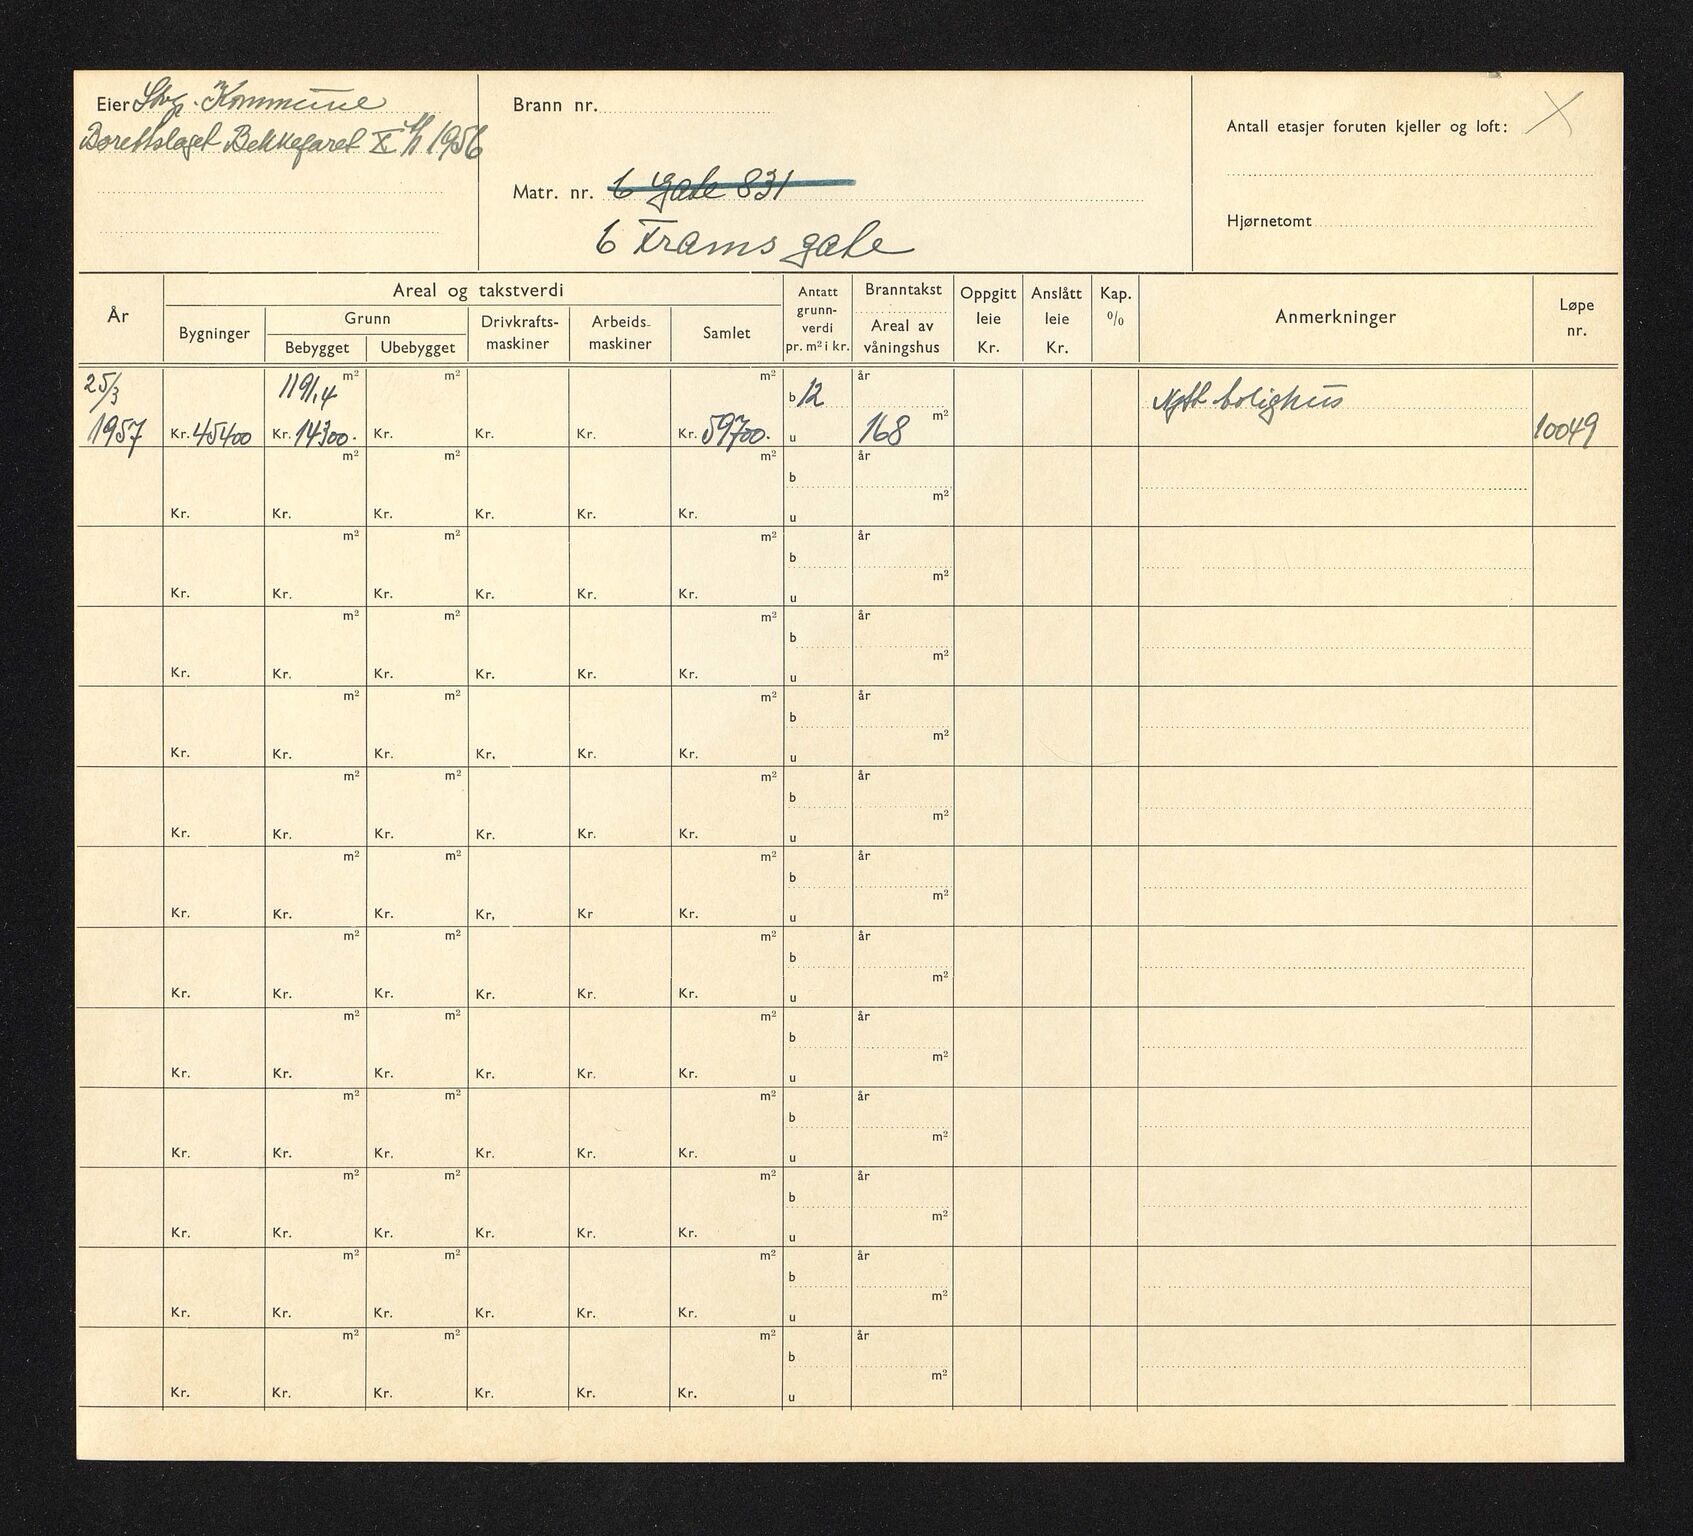 Eier Stvg. Kommune
Borettslaget Bekkefaret X 1956
Brann nr.
Matr. nr. 6 Gate 831
6 Frams gate
Antall etasjer foruten kjeller og loft: X
Hjørnetomt
År
Areal og takstverdi
Bygninger
Grunn
Bebygget Ubebygget
Drivkrafts-
maskiner
Arbeids-
maskiner
Samlet
Antatt
grunn-
verdi
pr. m² i kr.
Branntakst
Areal av
våningshus
Oppgitt
leie
Kr.
Anslått
leie
Kr.
Kap.
%
Anmerkninger
Løpe
nr.
25/3 1191,4 m² m² m² b 12 år Nytt bolighus
1957 Kr. 45400 Kr. 14300. Kr. Kr. Kr. Kr. 59700. u 168 m² 10049
m² m² m² b år
Kr. Kr. Kr. Kr. Kr. Kr. u m²
m² m² m² b år
Kr. Kr. Kr. Kr. Kr. Kr. u m²
m² m² m² b år
Kr. Kr. Kr. Kr. Kr. Kr. u m²
m² m² m² b år
Kr. Kr. Kr. Kr. Kr. Kr. u m²
m² m² m² b år
Kr. Kr. Kr. Kr. Kr. Kr. u m²
m² m² m² b år
Kr. Kr. Kr. Kr, Kr Kr. u m²
m² m² m² b år
Kr. Kr. Kr. Kr. Kr. Kr. u m²
m² m² m² b år
Kr. Kr. Kr. Kr. Kr. Kr. u m²
m² m² m² b år
Kr. Kr. Kr. Kr. Kr. Kr. u m²
m² m² m² b år
Kr. Kr. Kr. Kr. Kr. Kr. u m²
m² m² m² b år
Kr. Kr. Kr. Kr. Kr. Kr. u m²
m² m² m² b år
Kr. Kr. Kr. Kr. Kr. Kr. u m²